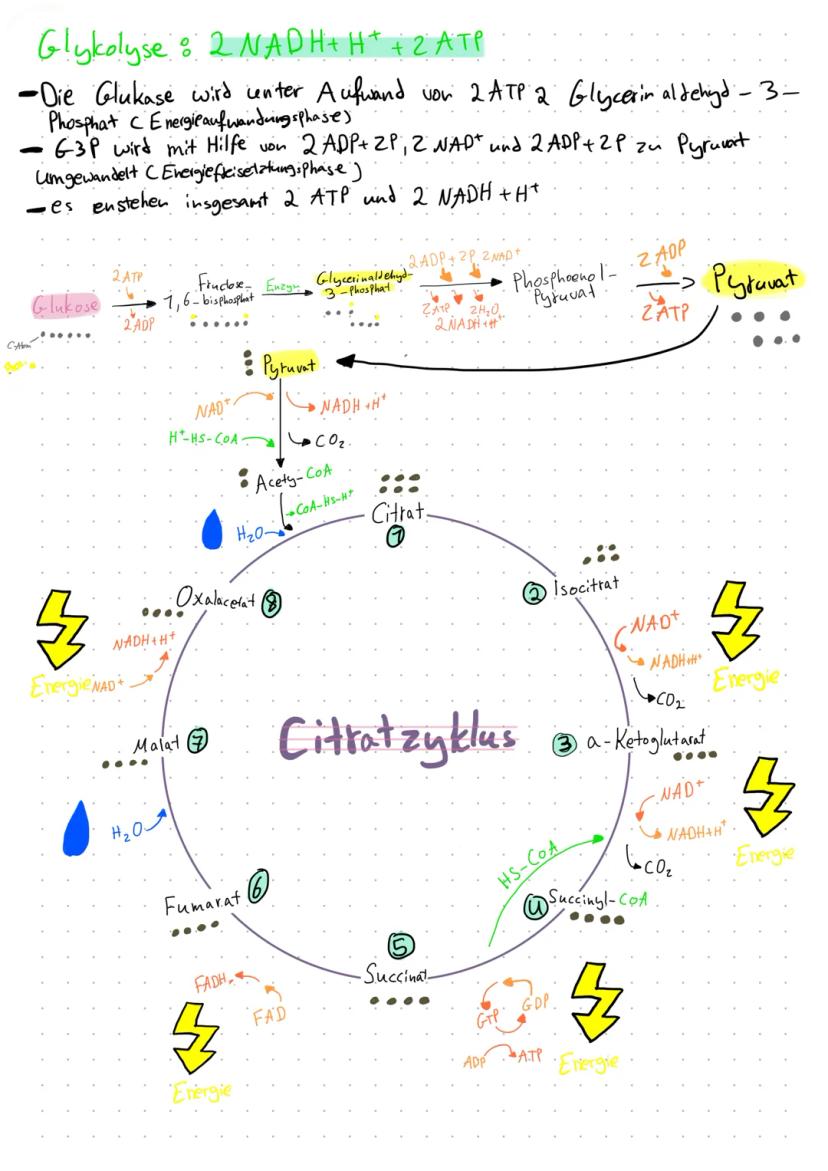 Glykolyse : 2 NADH+ H⁺ + 2 ATP
– Die Glukase wird unter Aufwand von 2 ATP 2 Glycerinaldehyd – 3 –
Phosphat ( Energieaufwandungsphase)
– G3P wird mit Hilfe von 2 ADP+ 2P, 2 NAD⁺ und 2 ADP + 2P zu Pyruvat
umgewandelt ( Energiefreisetztungsphase)
– es enstehen insgesamt 2 ATP und 2 NADH + H⁺
Glukose
C-Atom
2 ATP
2 ADP
Fructose-
1,6-bisphosphat
Enzym
Glycerinaldehyd-
3-phosphat
2 ADP + 2P 2 NAD⁺
2 ATP 2 H₂O
2 NADH+H⁺
Phosphoenol-
Pyruvat
2 ADP
2 ATP
Pyruvat
Pyruvat
NAD⁺
NADH +H⁺
H⁺-HS-CoA
CO₂
Acety-CoA
CoA-HS-H⁺
H₂O
Citrat
1
2 Isocitrat
NAD⁺
NADH+H⁺
CO₂
Energie
Citratzyklus
3 a-Ketoglutarat
NAD⁺
NADH+H⁺
CO₂
Energie
HS-CoA
4 Succinyl-CoA
GDP
GTP
ADP
ATP
Energie
5
Succinat
FADH₂
FAD
Energie
Fumarat 6
H₂O
Malat 7
NADH+H⁺
NAD⁺
Energie
Oxalacetat 8